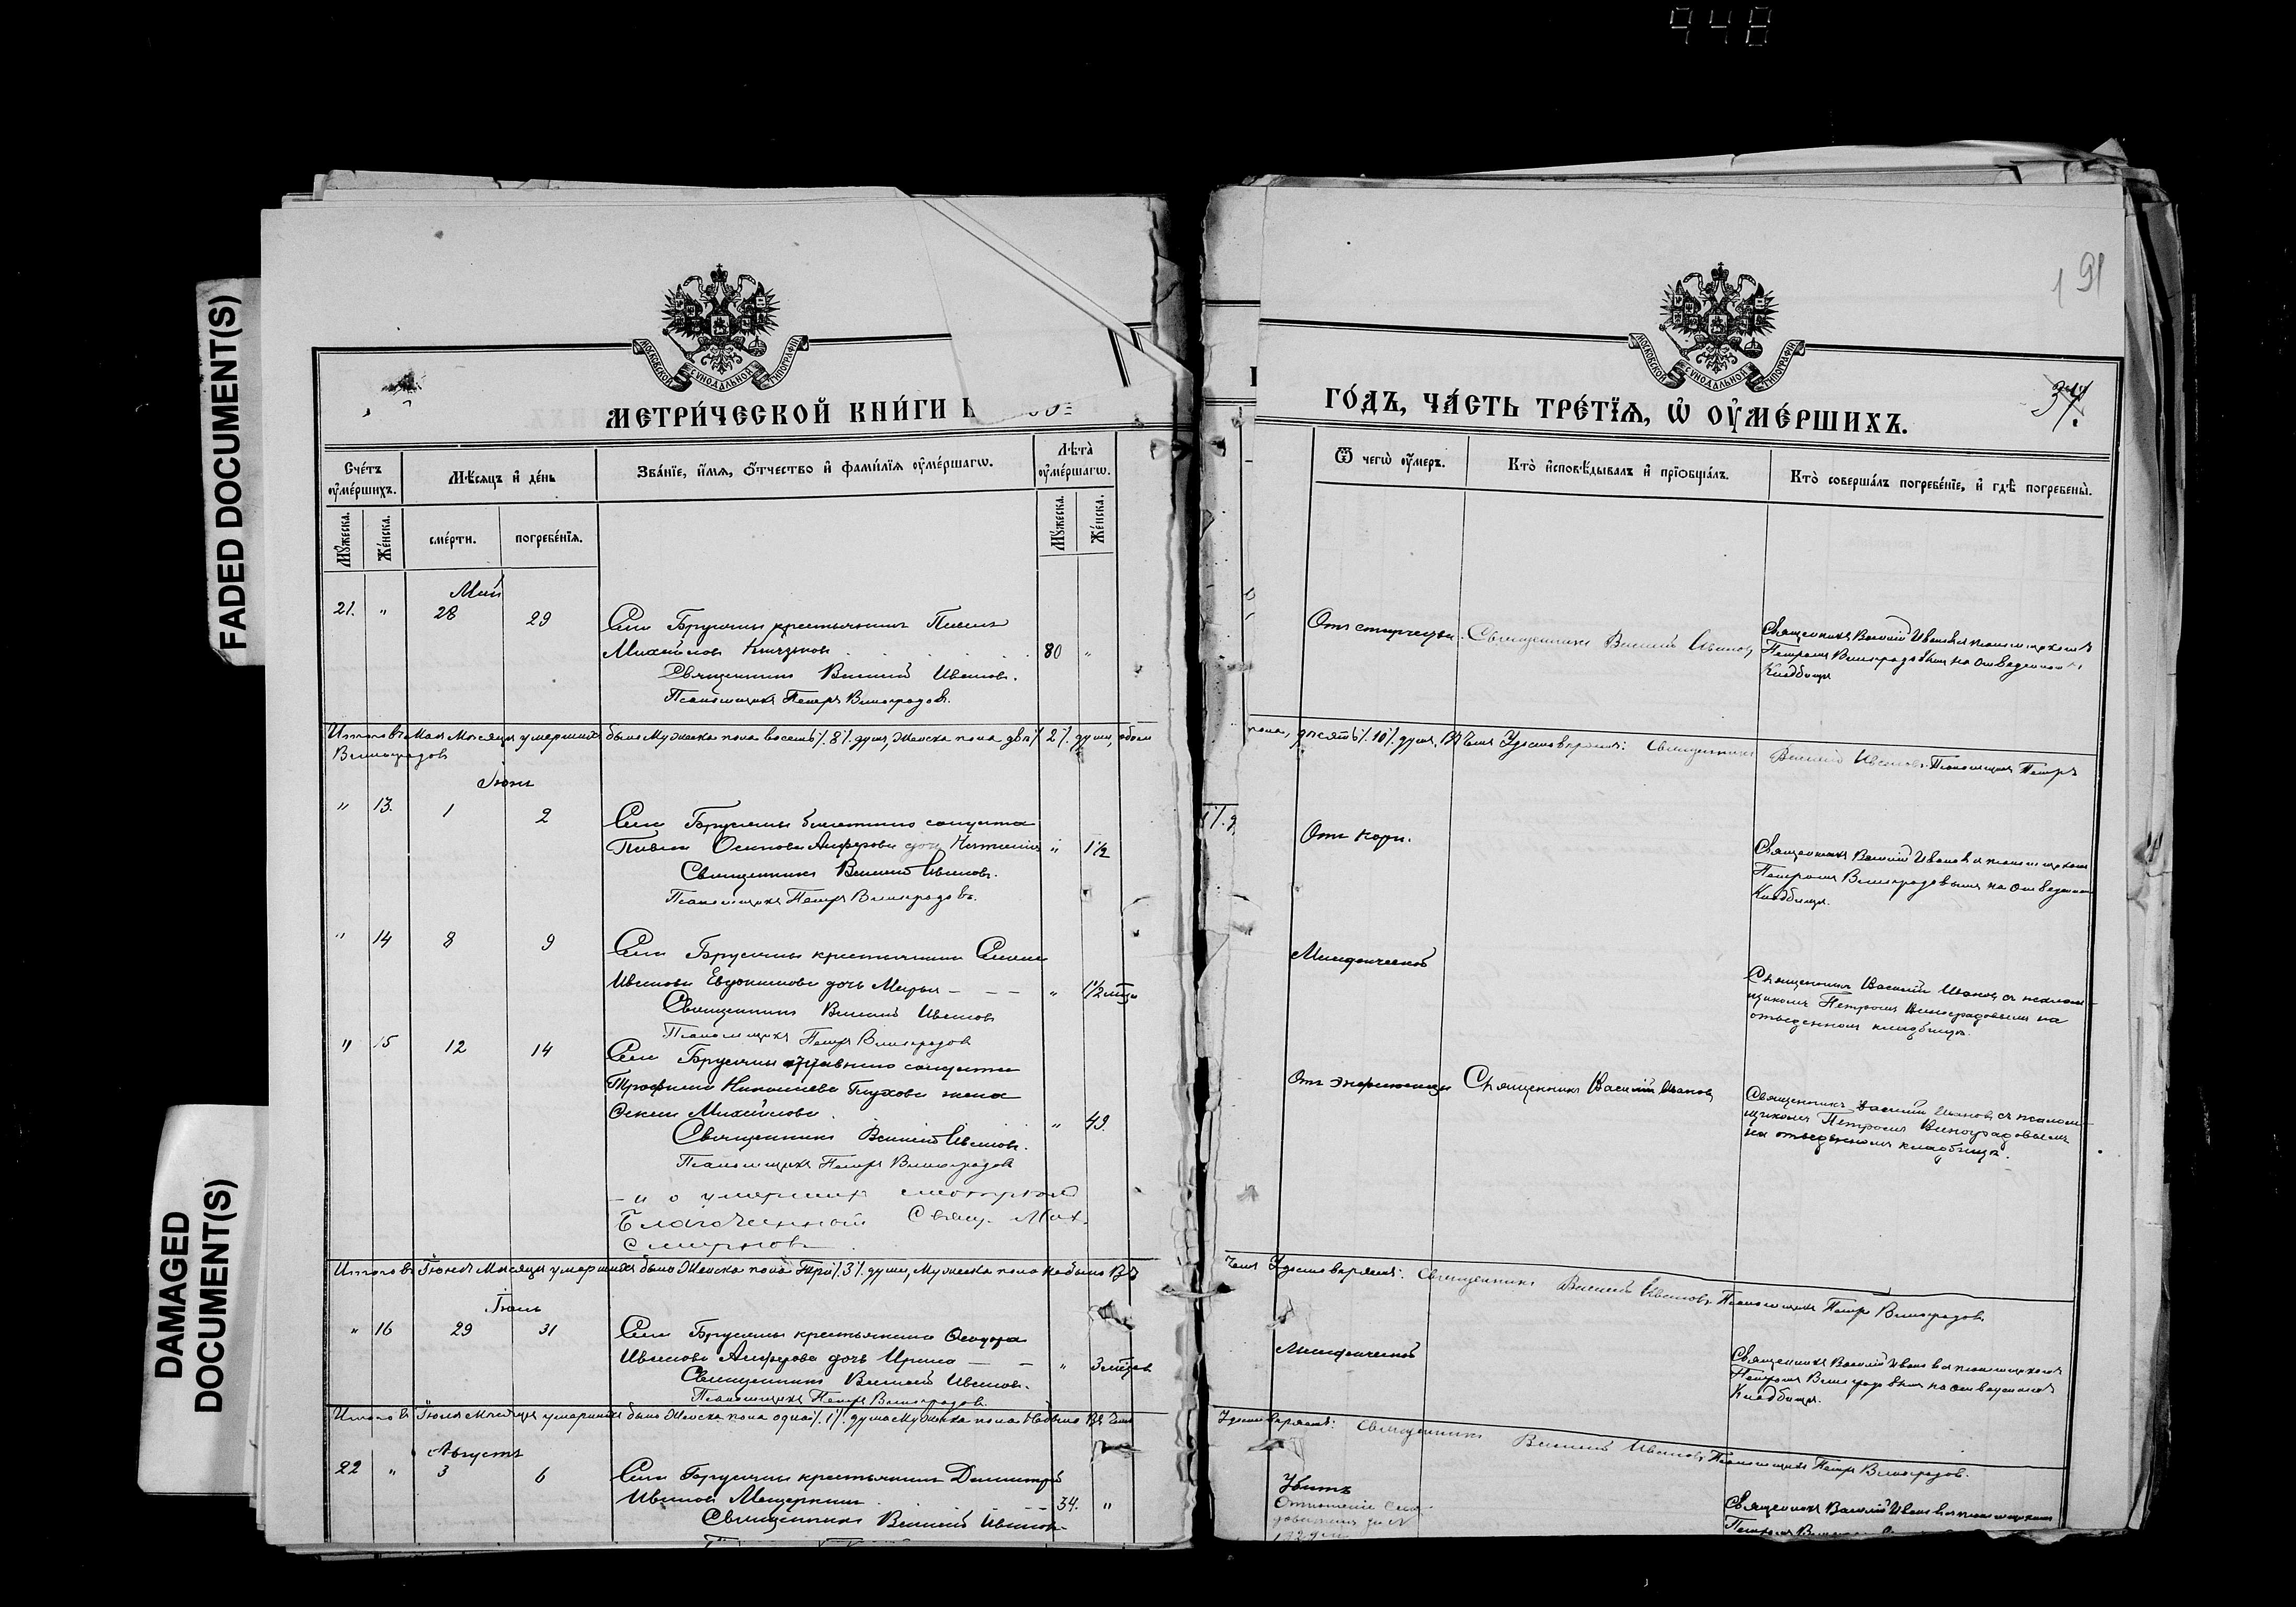 948
FADED DOCUMENT(S)
DAMAGED
DOCUMENT(S)
МОСКОВСКОЙ СѴНОДАЛЬНОЙ ТИПОГРАФІИ
МЕТРИ́ЧЕСКОЙ КНИ́ГИ
Сче́тъ ᲂу҆ме́ршихъ.
Мѣ́сяцъ и҆ де́нь
Зва́нїе, и҆́мѧ, ѻ҆́тчество и҆ фами́лїѧ ᲂу҆ме́ршагѡ.
Лѣ́та ᲂу҆ме́ршагѡ.
Мꙋ́жеска.
Же́нска.
сме́рти.
погребе́нїѧ.
Мꙋ́жеска.
Же́нска.
Май
21. " 28 29 Села Брусяны крестьянинъ Павелъ
Михайловъ 80 "
Священникъ Василий Ивановъ.
Псаломщикъ Петръ Виноградовъ.
Итого въ Мая Месяце умершихъ было Мужеска пола восемь /.8/. душ, Женска пола две /.2/. души, обоего
Виноградовъ
Іюнь
" 13. 1 2 Села Брусяны солдата
Павла Осипова Анферова дочь " 1 1/2
Священникъ Василий Ивановъ.
Псаломщикъ Петръ Виноградовъ.
" 14 8 9 Села Брусяны крестьянина
Иванова Евдокимова дочь Марья - - - " 1 1/2 мѣсц
Священникъ Василий Ивановъ
Псаломщикъ Петръ Виноградовъ
" 15 12 14 Села Брусяны солдата
Трофима Николаева Глухова жена
Михайлова " 49.
Священникъ Василий Ивановъ.
Псаломщикъ Петръ Виноградовъ
и о умершихъ смотрѣлъ
Благочинный Свящ.
Смирновъ
Итого въ Іюнѣ Месяце умершихъ было Женска пола Три /.3/. души, Мужеска пола небыло Въ
Іюль
" 16 29 31 Села Брусяны крестьянина Ѳеодора
Иванова Анферова дочь Ирина - - " 3 мѣсца
Священникъ Василий Ивановъ.
Псаломщикъ Петръ Виноградовъ.
Итого въ Іюлѣ Месяце умершихъ было Женска пола одна /.1/. душа Мужеска пола Небыло Въ чемъ
Августъ
22 " 3 6 Села Брусяны крестьянинъ Димитрий
Ивановъ Мещеркинъ - - 34. "
Священникъ Василий Ивановъ
191
МОСКОВСКОЙ СѴНОДАЛЬНОЙ ТИПОГРАФІИ
ГО́ДЪ, ЧА́СТЬ ТРЕ́ТЇѦ, Ѡ҆ ОУ҆МЕ́РШИХЪ.
Ѿ чегѡ̀ ᲂу҆́меръ.
Кто̀ и҆сповѣ́дывалъ и҆ прїѡбща́лъ.
Кто̀ соверша́лъ погребе́нїе, и҆ гдѣ̀ погребены̀.
Отъ старости. Священникъ Василий Ивановъ
Священникъ Василий Ивановъ и псаломщикомъ
Петромъ Виноградовымъ на отведенномъ
Кладбище
пола, десять /.10/. душъ, Въ чемъ Удостоверяемъ: Священникъ Василий Ивановъ. Псаломщикъ Петръ
Отъ кори.
Священникъ Василий Ивановъ и псаломщикомъ
Петромъ Виноградовымъ на отведенномъ
Кладбище.
Младенческой
Священникъ Василій Ивановъ съ псалом-
щикомъ Петромъ Виноградовымъ на
отведенномъ кладбищѣ.
Священникъ Василій Ивановъ
Священникъ Василій Ивановъ съ псалом-
щикомъ Петромъ Виноградовымъ
на отведенномъ кладбищѣ.
чемъ Удостоверяемъ: Священникъ Василий Ивановъ. Псаломщикъ Петръ Виноградовъ.
Младенческой
Священникъ Василий Ивановъ и псаломщикомъ
Петромъ Виноградовымъ на отведенномъ
Кладбище.
Удостоверяемъ: Священникъ Василий Ивановъ. Псаломщикъ Петръ Виноградовъ.
Убитъ
Священникъ Василий Ивановъ и псаломщикомъ